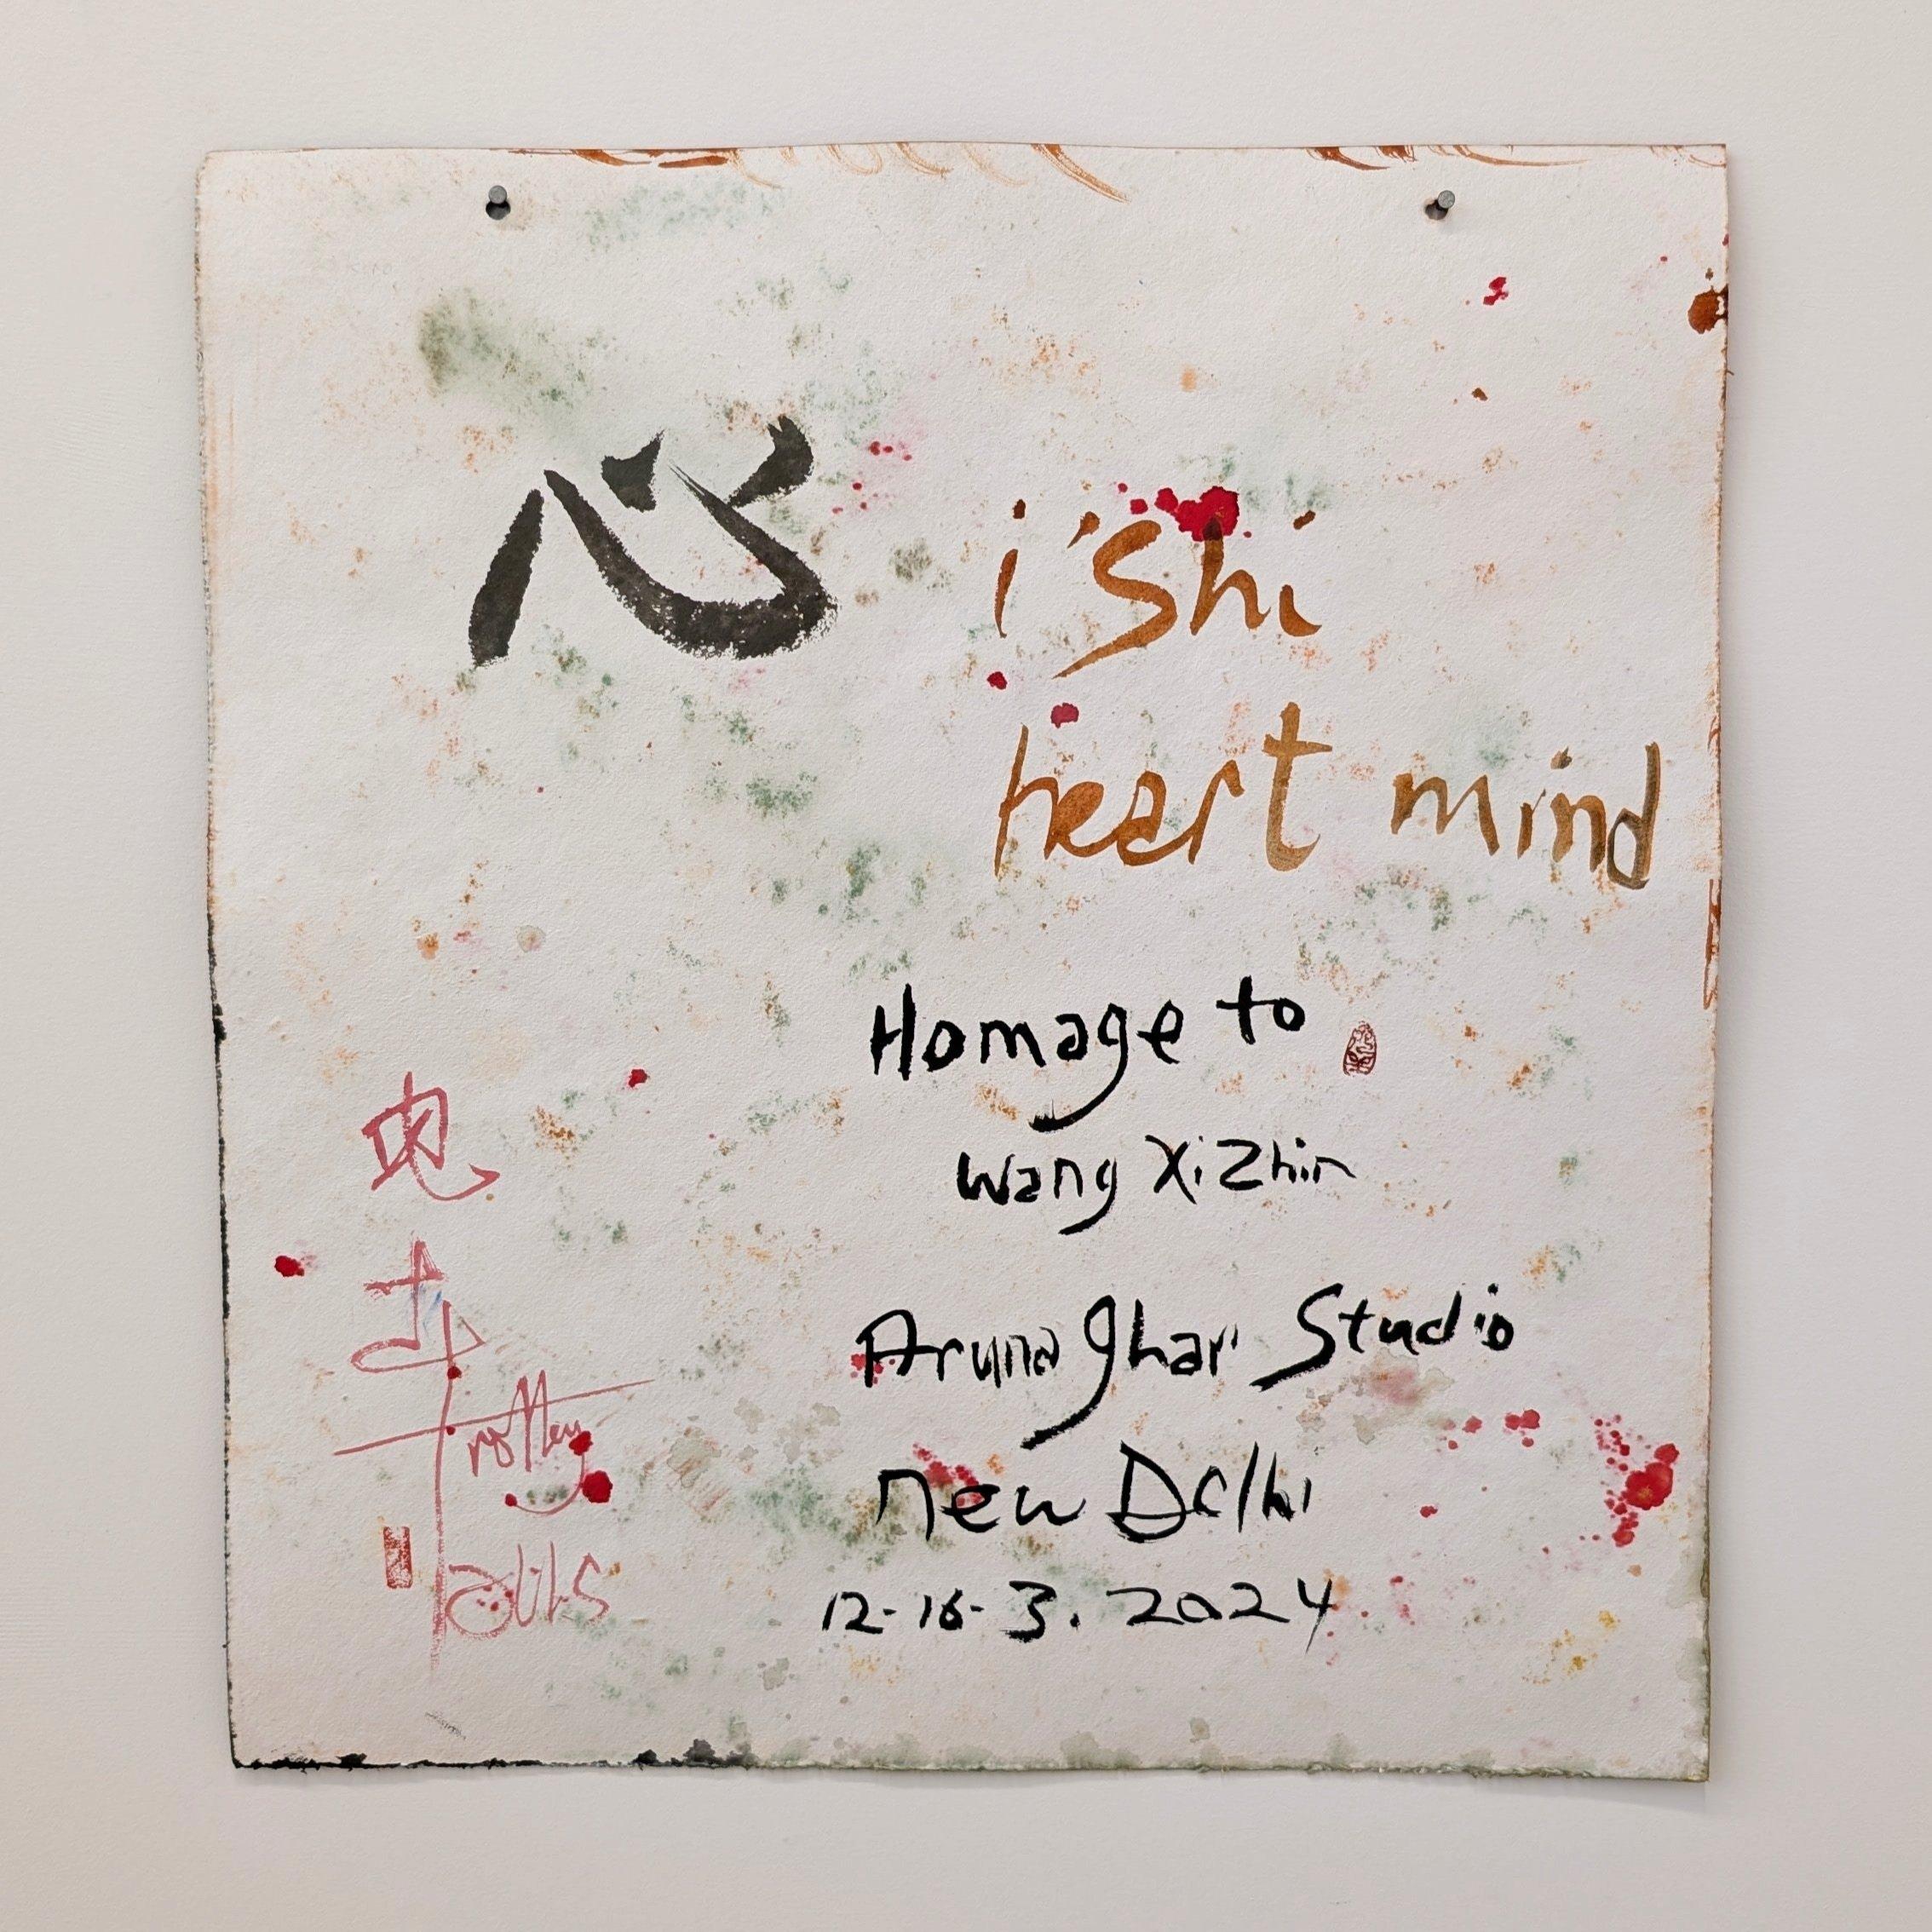 心 i'shi
heart mind
Homage to
Wang XiZhin
Aruna ghar Studio
new Delhi
12-16-3. 2024
地